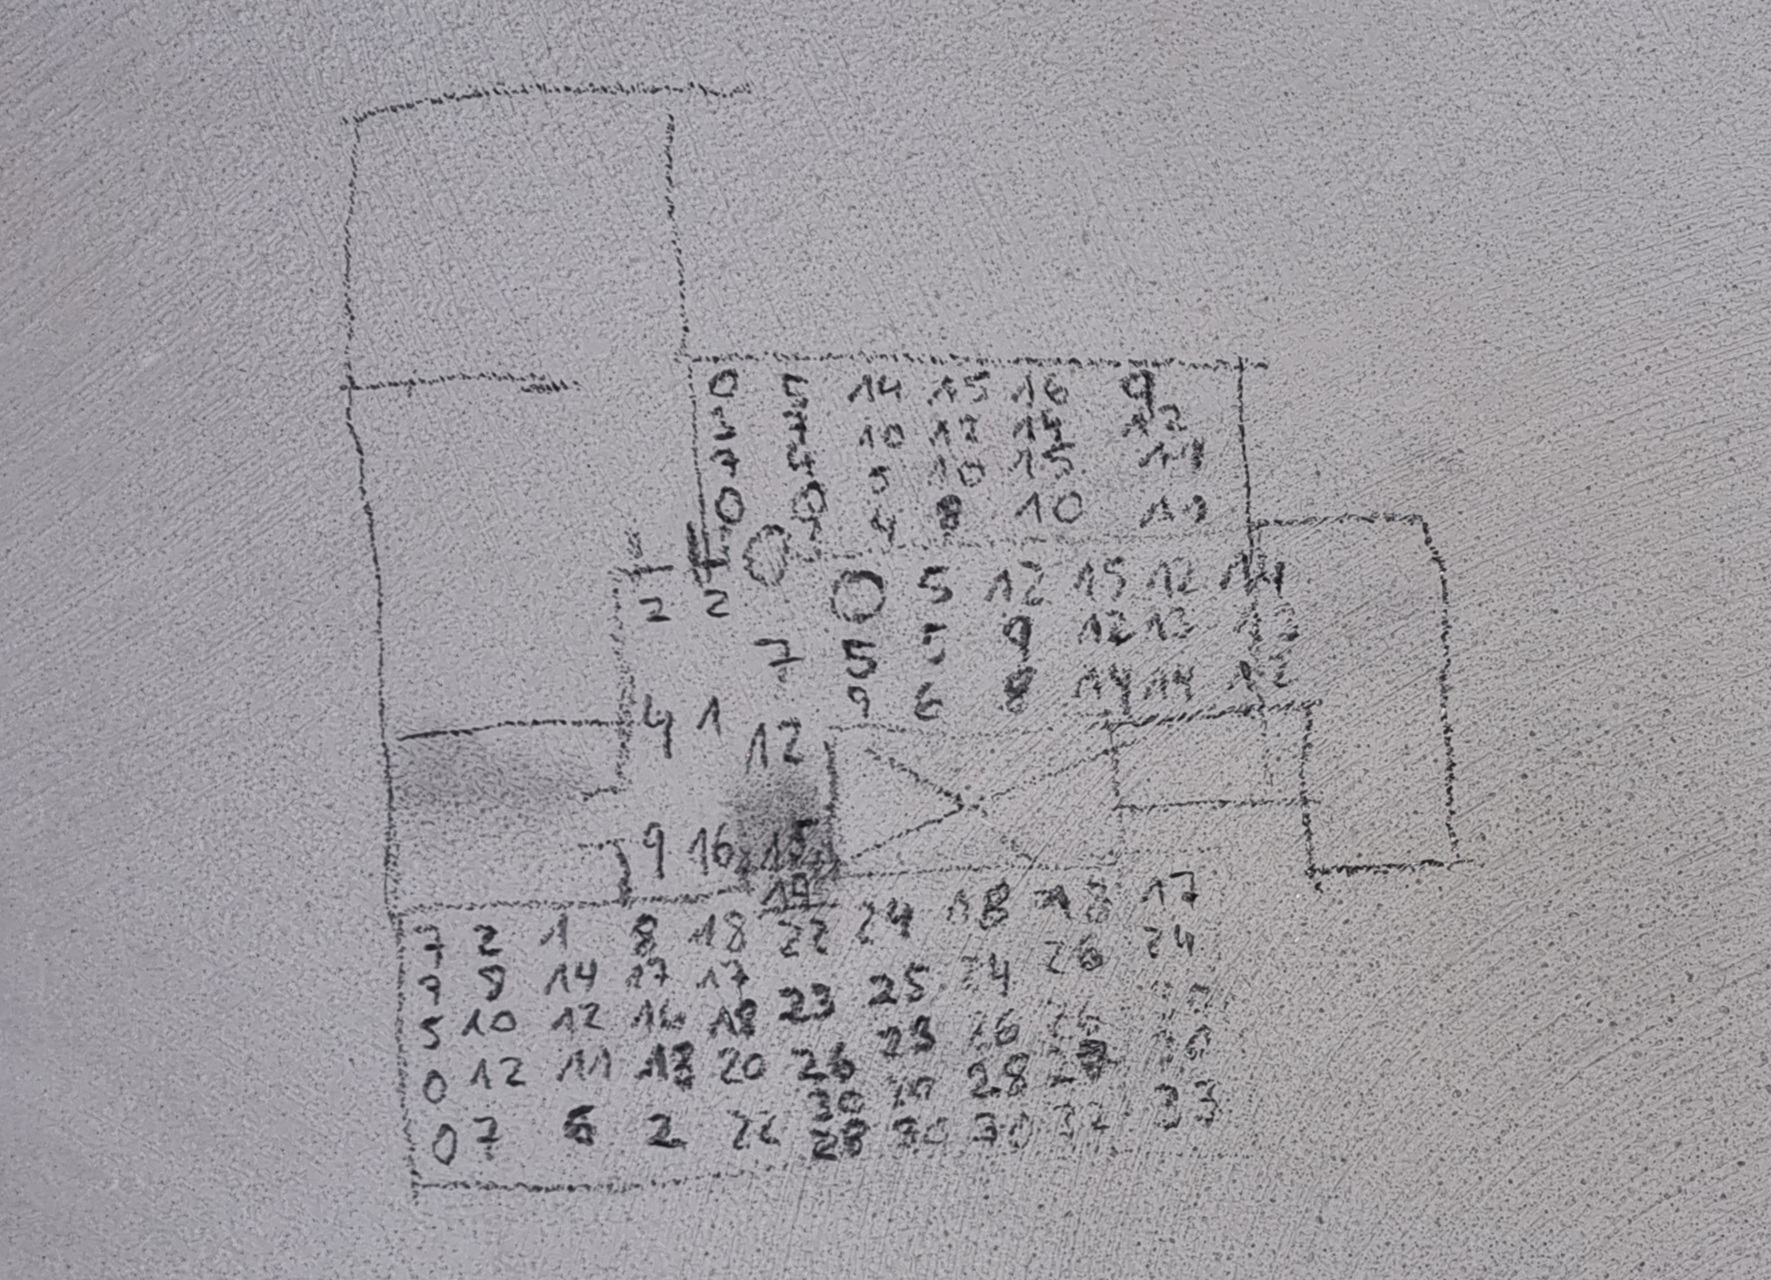 0 5 14 15 16 9
3 7 10 12 14 12
7 4 5 10 15 11
0 0 4 8 10 11
0
2 2 0 5 12 15 12 14
7 5 5 9 12 13 13
9 6 8 14 14 12
4 1 12
9 16 15
19
7 2 1 8 18 22 24 18 18 17
9 9 14 17 17 23 25 24 26 24
5 10 12 16 18 23 26
0 12 11 13 20 26 28
30
0 7 6 2 22 28 30 30 32 33